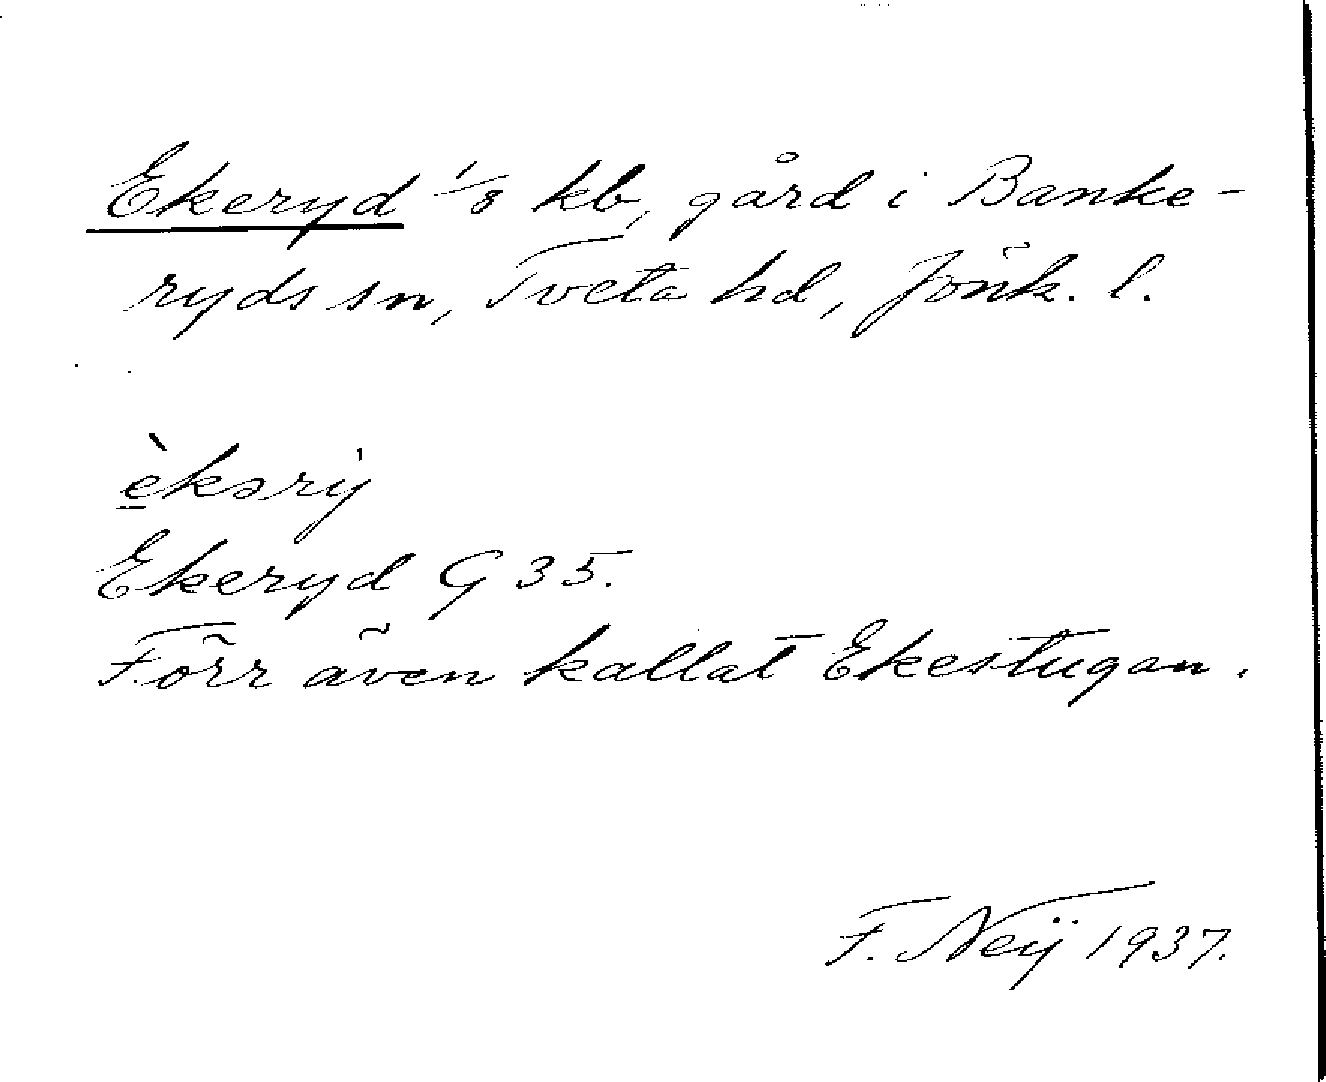 Ekeryd 1/8 kb, gård i Banke-
ryds sn, Tveta hd, Jönk. l.
è̱kərý
Ekeryd G 35.
Förr även kallat Ekestugan.
F. Neij 1937.